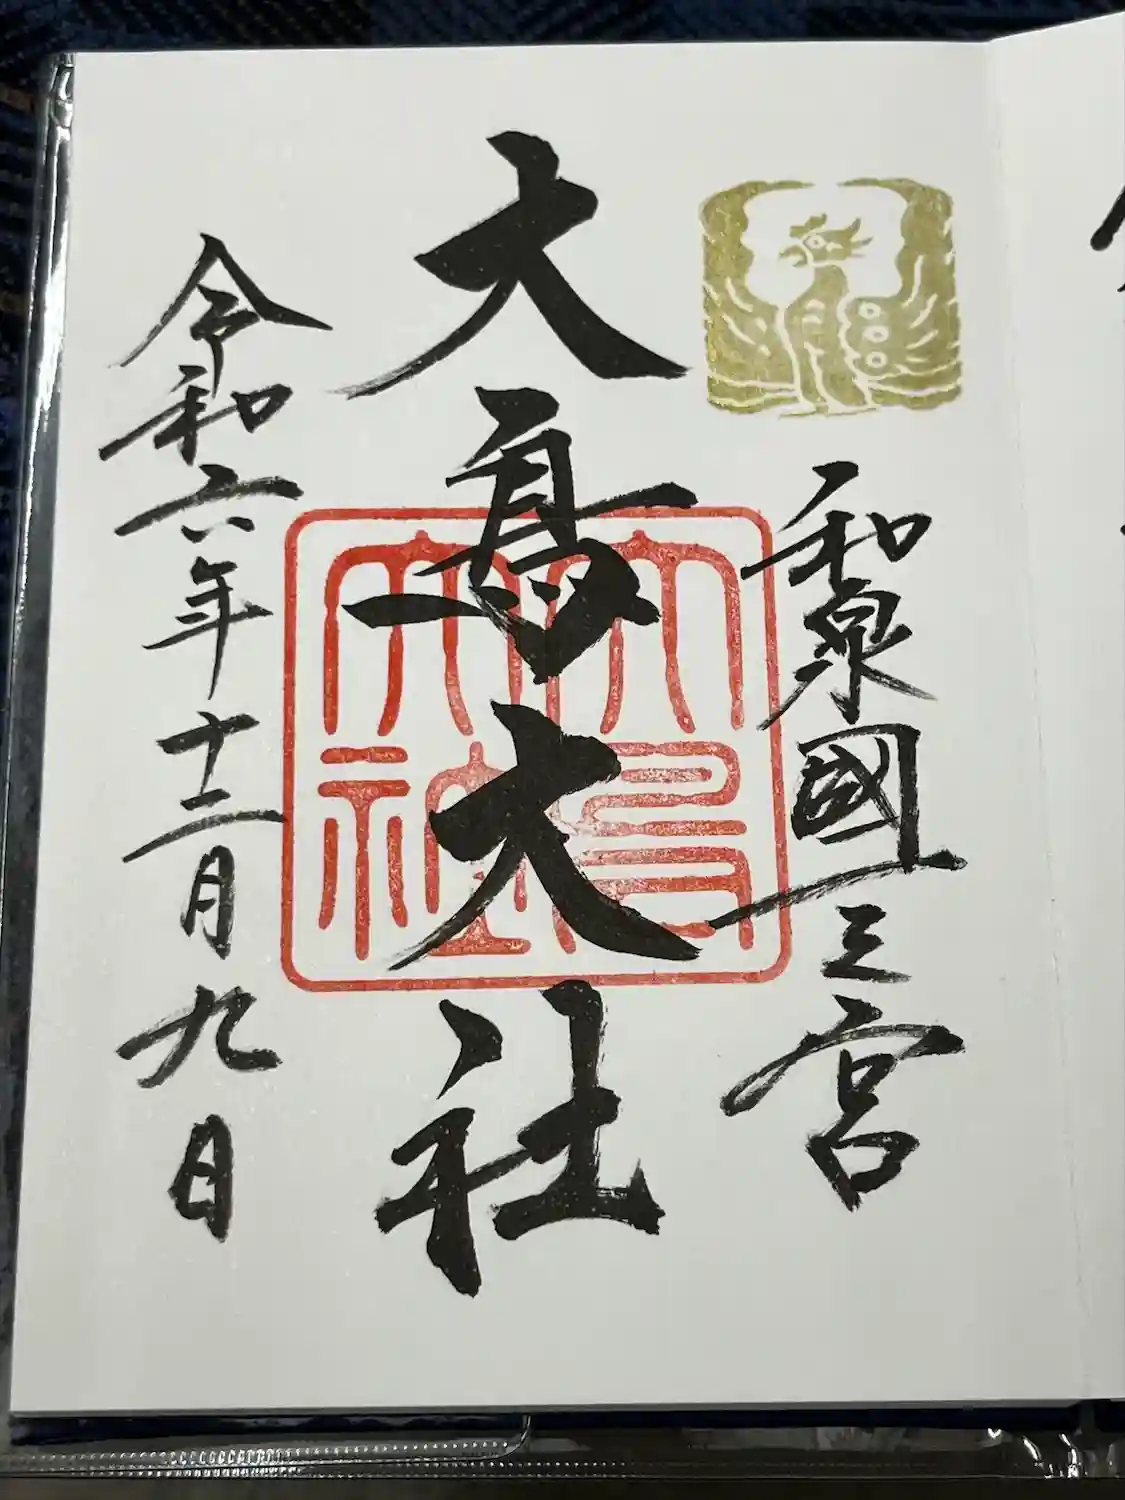 和泉國一之宮
大鳥大社
令和六年十二月九日
大鳥
大社